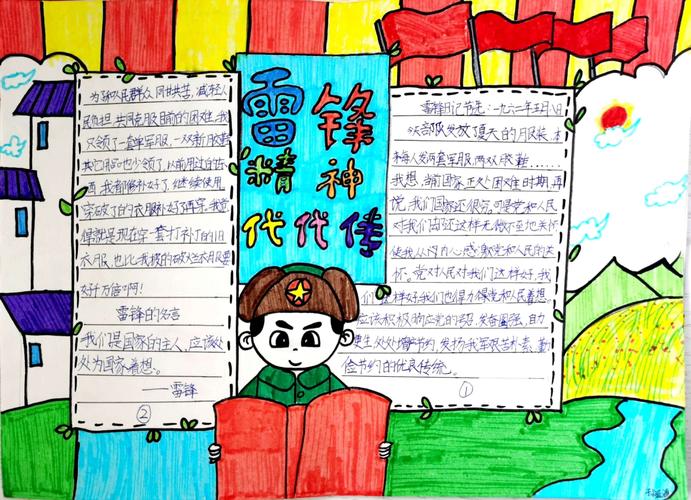 雷锋
精神
代代传
雷锋日记节选:一九六二年五月八日
今天部队发放了夏天的月服装,本
来每人发两套军服,两双胶鞋……
我想,当前国家正处困难时期,再
说,我们国家还很穷,可是党和人民
对我们却还这样无微不至地关怀
使我从内心感激党和人民的关
怀。党对人民对我们这样好,我
们
样好,我们也得为得党和人民着想。
应该积极响应党的号召,发奋图强,自力
更生,处处增产节约,发扬我军艰苦朴素、勤
俭节约的优良传统。
①
为和人民群众同甘共苦,减轻人
民负担,共同克服目前的困难,我
只领了一套单军服,一双新胶鞋
其它用品也少领了,以前用过的东
西,我都修补好了,继续使用
穿破了的衣服补好了再穿。我觉
得就是现在穿一套打补丁的旧
衣服,也比我披的破大衣服要
好千万倍啊!
雷锋的名言
我们是国家的主人,应该处
处为国家着想。
——雷锋
②